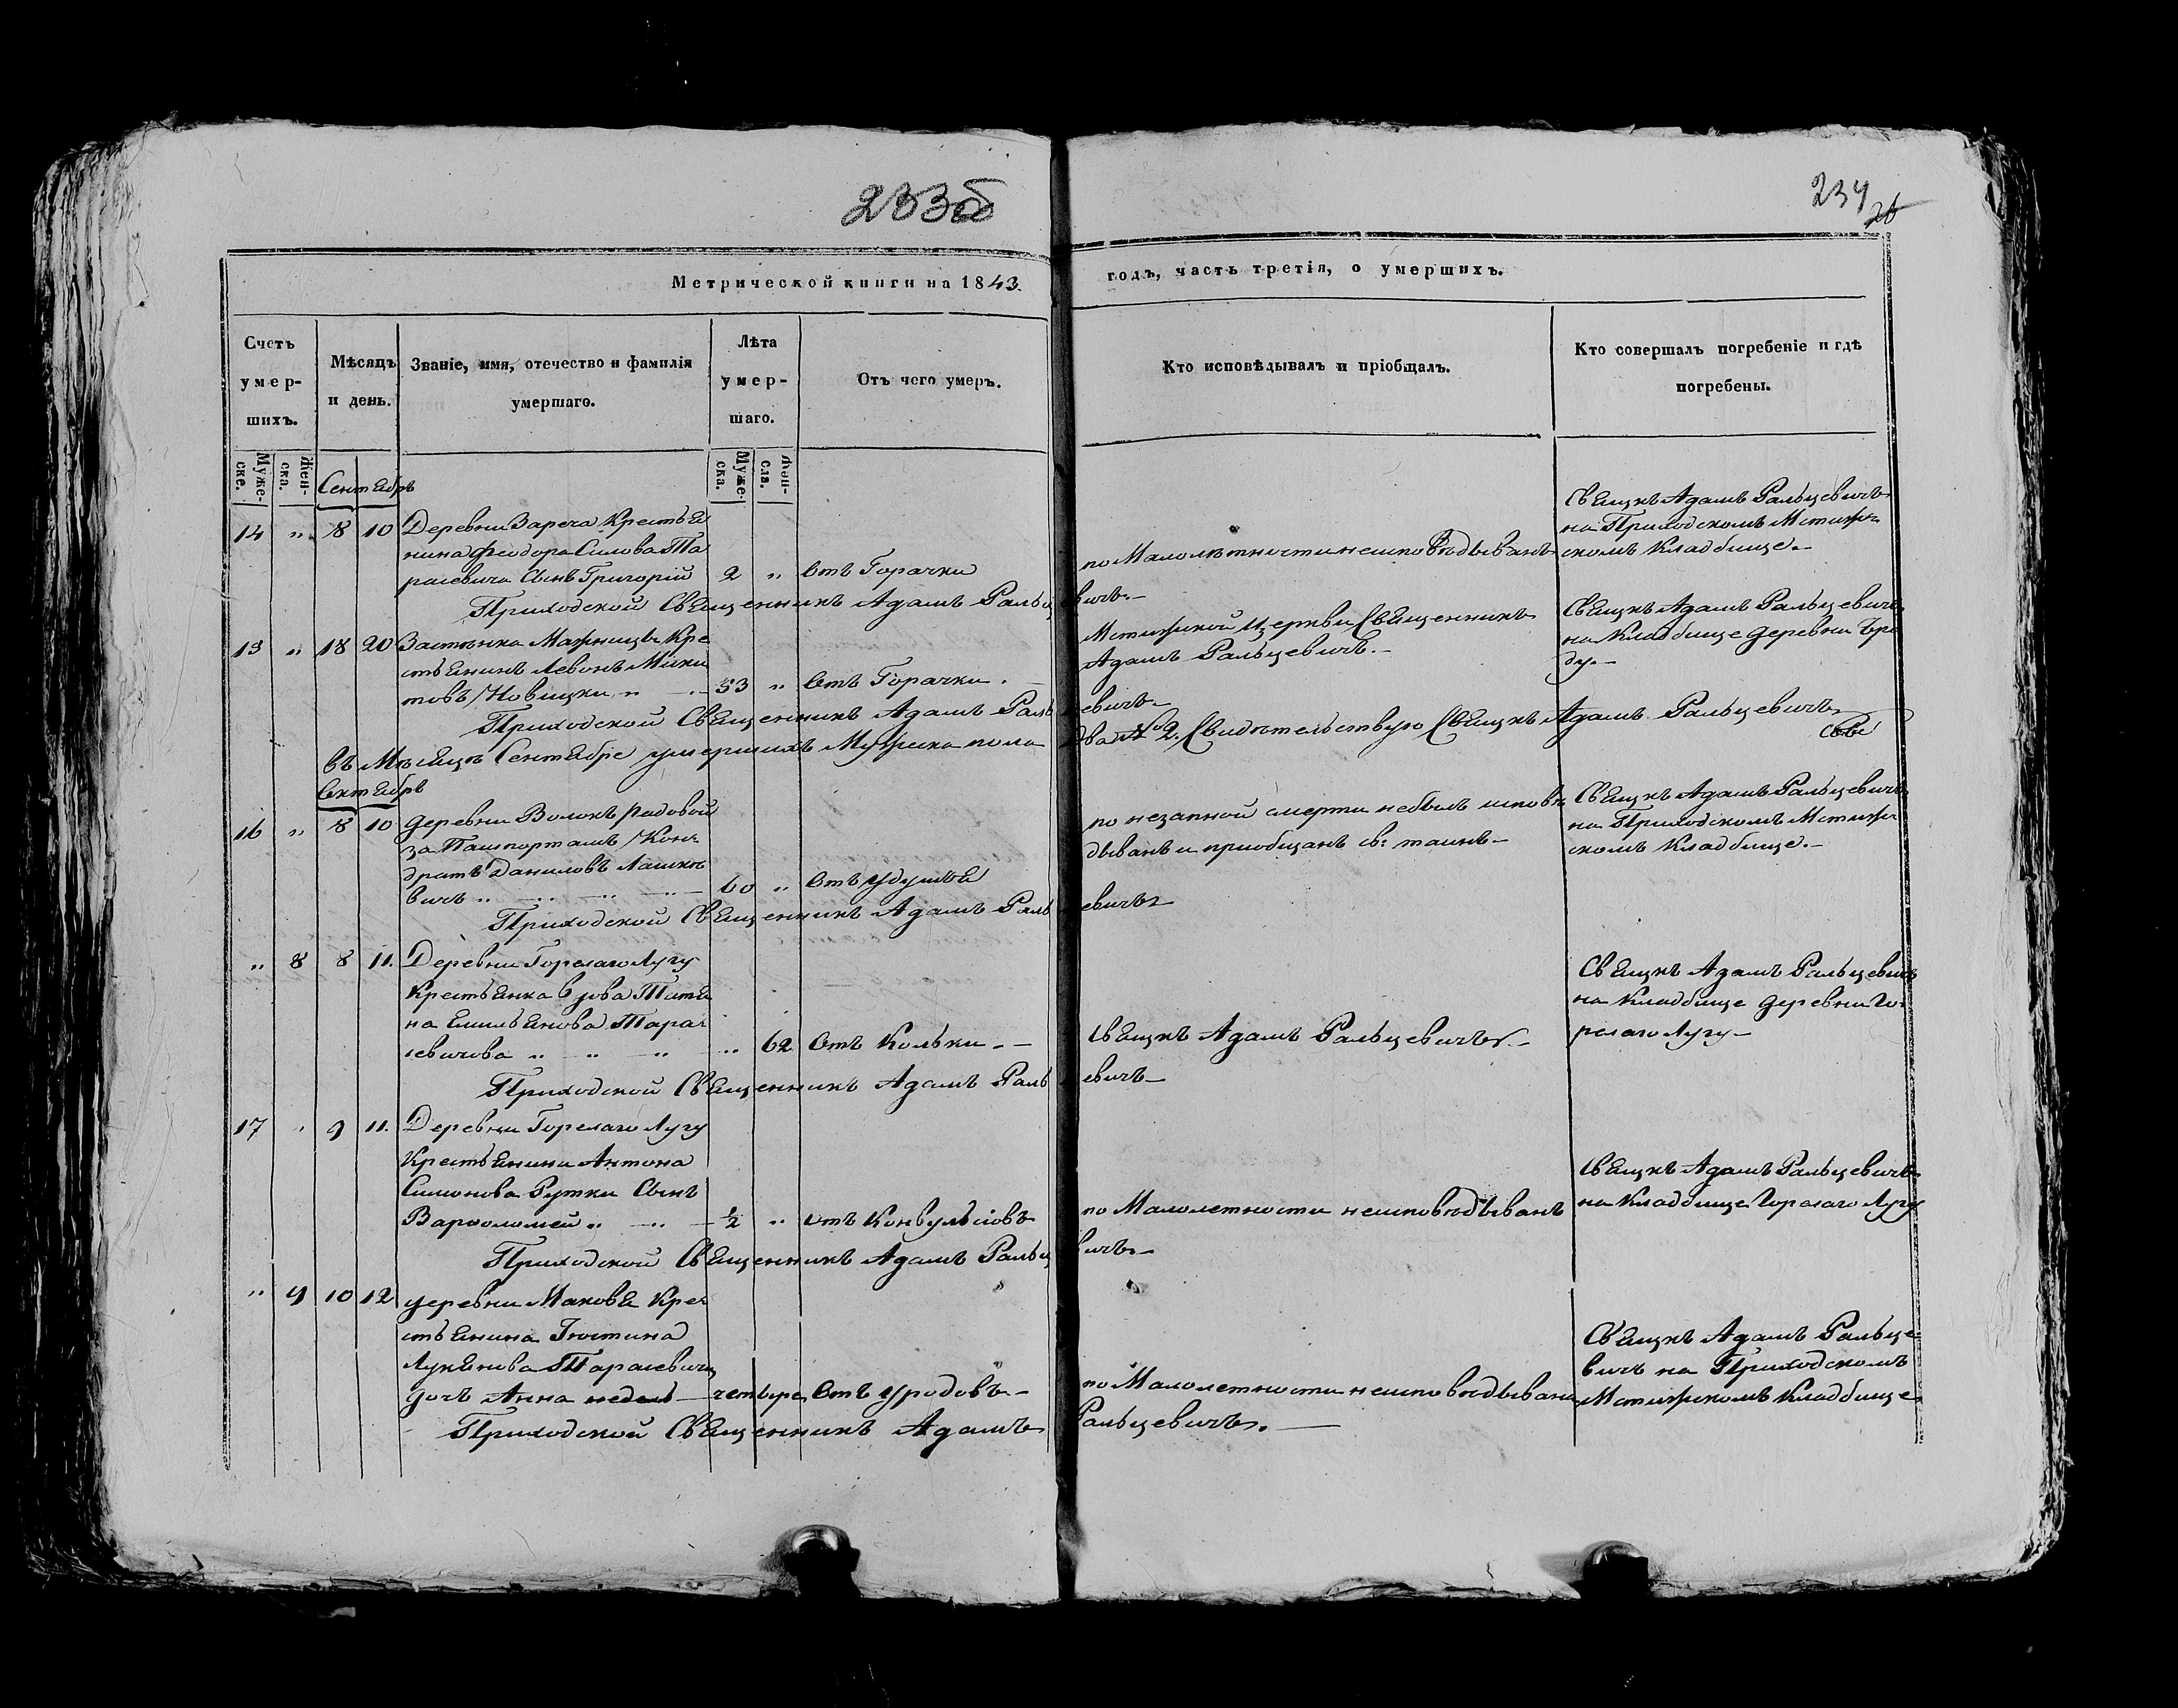 233об
234
26
Метрической книги на 1843.
годъ, часть третія, о умершихъ.
Счетъ умер-шихъ.
Мѣсяцъ и день.
Званіе, имя, отечество и фамилія умершаго.
Лѣта умер-шаго.
Отъ чего умеръ.
Кто исповѣдывалъ и пріобщалъ.
Кто совершалъ погребеніе и гдѣ погребены.
Муже-ске.
Жен-ска.
Муже-ска.
Жен-ска.
Сентябрь
14 „ 8 10 Деревни Зареча Крестья
нина Феодора Силова Та
расевича Сынъ Григорій 2 „ Отъ Горачки
по Малолѣтности неисповѣдыванъ
Свящкъ Адамъ Ральцевичъ
на Приходскомъ Мстиж-
скомъ Кладбище.
Приходской Священникъ Адамъ Ральцевичъ.
15 „ 18 20 Застѣнка Мажницы Кре
стьянинъ Левонъ Мики
товъ Новицки „ 53 „ Отъ Горачки.
Мстижской Церкви Священникъ
Адамъ Ральцевичъ.
Свящкъ Адамъ Ральцевичъ
на Кладбище деревни
Приходской Священникъ Адамъ Ральцевичъ
въ Мѣсяцѣ Сентябре умершихъ Мужеска пола два № 2. Свидѣтельствую Свящкъ Адамъ Ральцевичъ
Октябрь
16 „ 8 10 деревни Волокъ радовой
за Пашпортамъ Кон-
дратъ Даниловъ Лашке
вичъ „ 60 „ Отъ удушья
по незапной смерти небылъ исповѣ
дыванъ и приобщанъ св: таинъ
Свящкъ Адамъ Ральцевичъ
на Приходскомъ Мстиж-
скомъ Кладбище.
Приходской Священникъ Адамъ Ральцевичъ
„ 8 8 11. Деревни Горелаго Лугу
Крестьянка вдова Татья
на Емильянова Тара
севичова „ „ „ 62 Отъ Кольки.
Свящкъ Адамъ Ральцевичъ.
Свящкъ Адамъ Ральцевичъ
на Кладбище деревни Го-
релаго Лугу
Приходской Священникъ Адамъ Ральцевичъ
17 „ 9 11. Деревни Горелаго Лугу
Крестьянина Антона
Симонова Рутки Сынъ
Варфоломей „ ½ „ отъ Конвульсіовъ
по Малолетности неисповѣдыванъ
Свящкъ Адамъ Ральцевичъ
на Кладбище Горелаго Лугу
Приходской Священникъ Адамъ Ральцевичъ.
„ 9 10 12 деревни Маковья Кре
стьянина Іюстина
Лукянова Тарасевича
дочь Анна недель четыре Отъ уродовъ
по Малолетности неисповѣдывана
Свящкъ Адамъ Ральце
вичъ на Приходскомъ
Мстижскомъ Кладбище
Приходской Священникъ Адамъ Ральцевичъ.